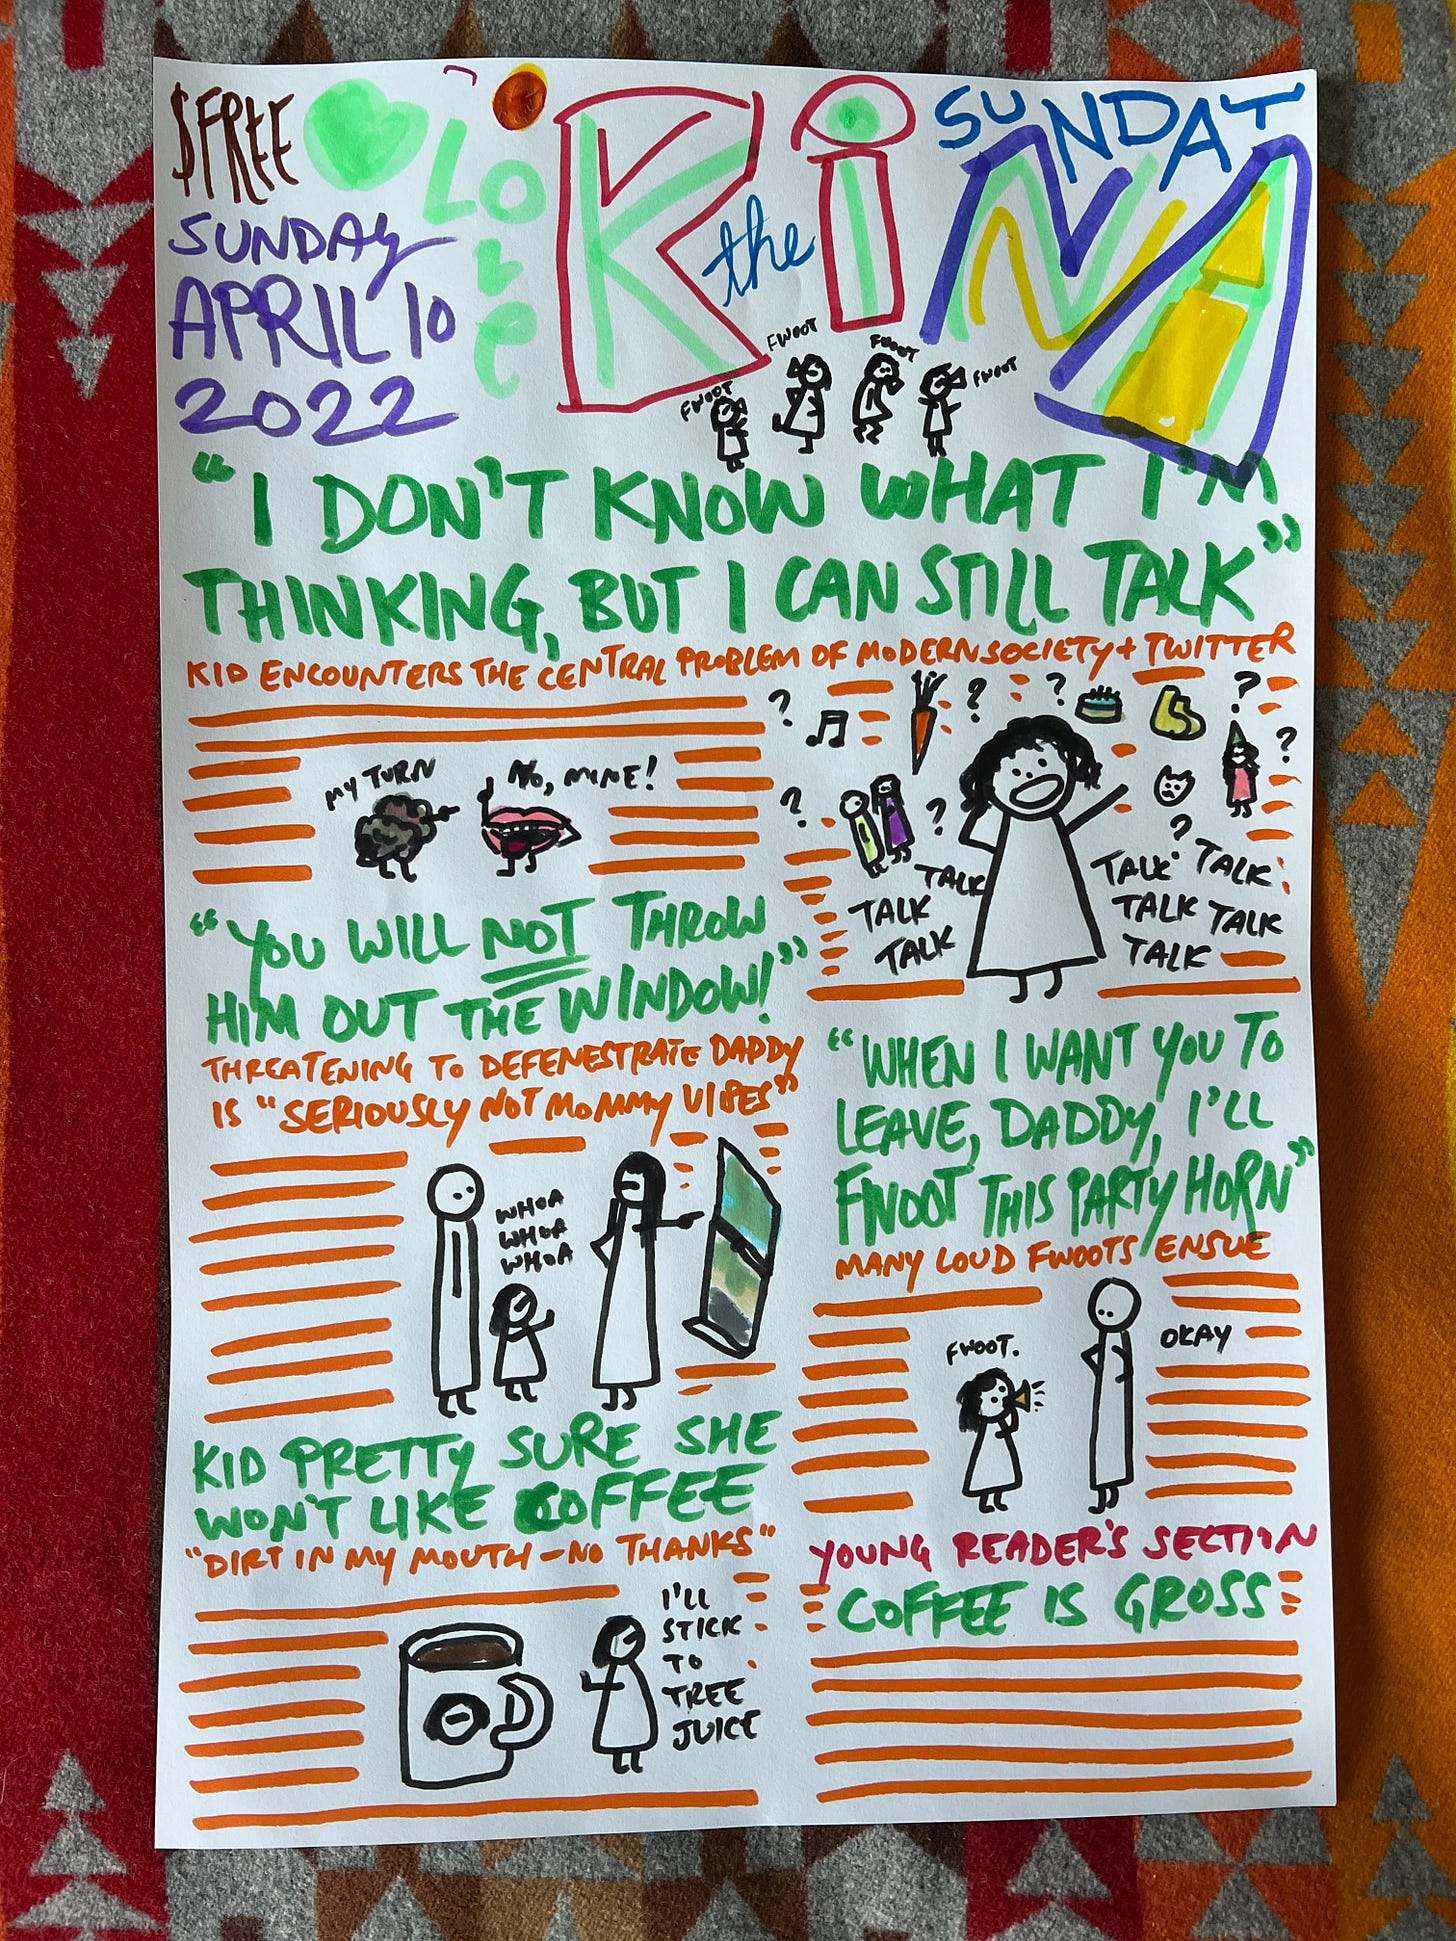 $FREE
SUNDAY
APRIL 10
2022
LOVE
the
KiNA
SUNDAY
FWOOT
FWOOT
FWOOT
FWOOT
"I DON'T KNOW WHAT I'M
THINKING, BUT I CAN STILL TALK"
KID ENCOUNTERS THE CENTRAL PROBLEM OF MODERN SOCIETY + TWITTER
MY TURN
NO, MINE!
? ? ? ? ? ? ? ?
TALK
TALK
TALK
TALK TALK
TALK TALK
TALK
"YOU WILL NOT THROW
HIM OUT THE WINDOW!"
THREATENING TO DEFENESTRATE DADDY
IS "SERIOUSLY NOT MOMMY VIBES"
WHOA
WHOA
WHOA
"WHEN I WANT YOU TO
LEAVE, DADDY, I'LL
FWOOT THIS PARTY HORN"
MANY LOUD FWOOTS ENSUE
FWOOT.
OKAY
KID PRETTY SURE SHE
WON'T LIKE COFFEE
"DIRT IN MY MOUTH - NO THANKS"
I'LL
STICK
TO
TREE
JUICE
YOUNG READER'S SECTION
COFFEE IS GROSS